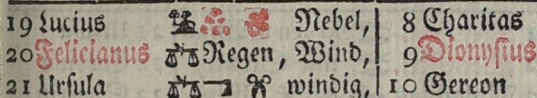 19 Lucius Nebel, 8 Charitas
20 Felicianus Regen, Wind, 9 Dionysius
21 Ursula windig, 10 Gereon